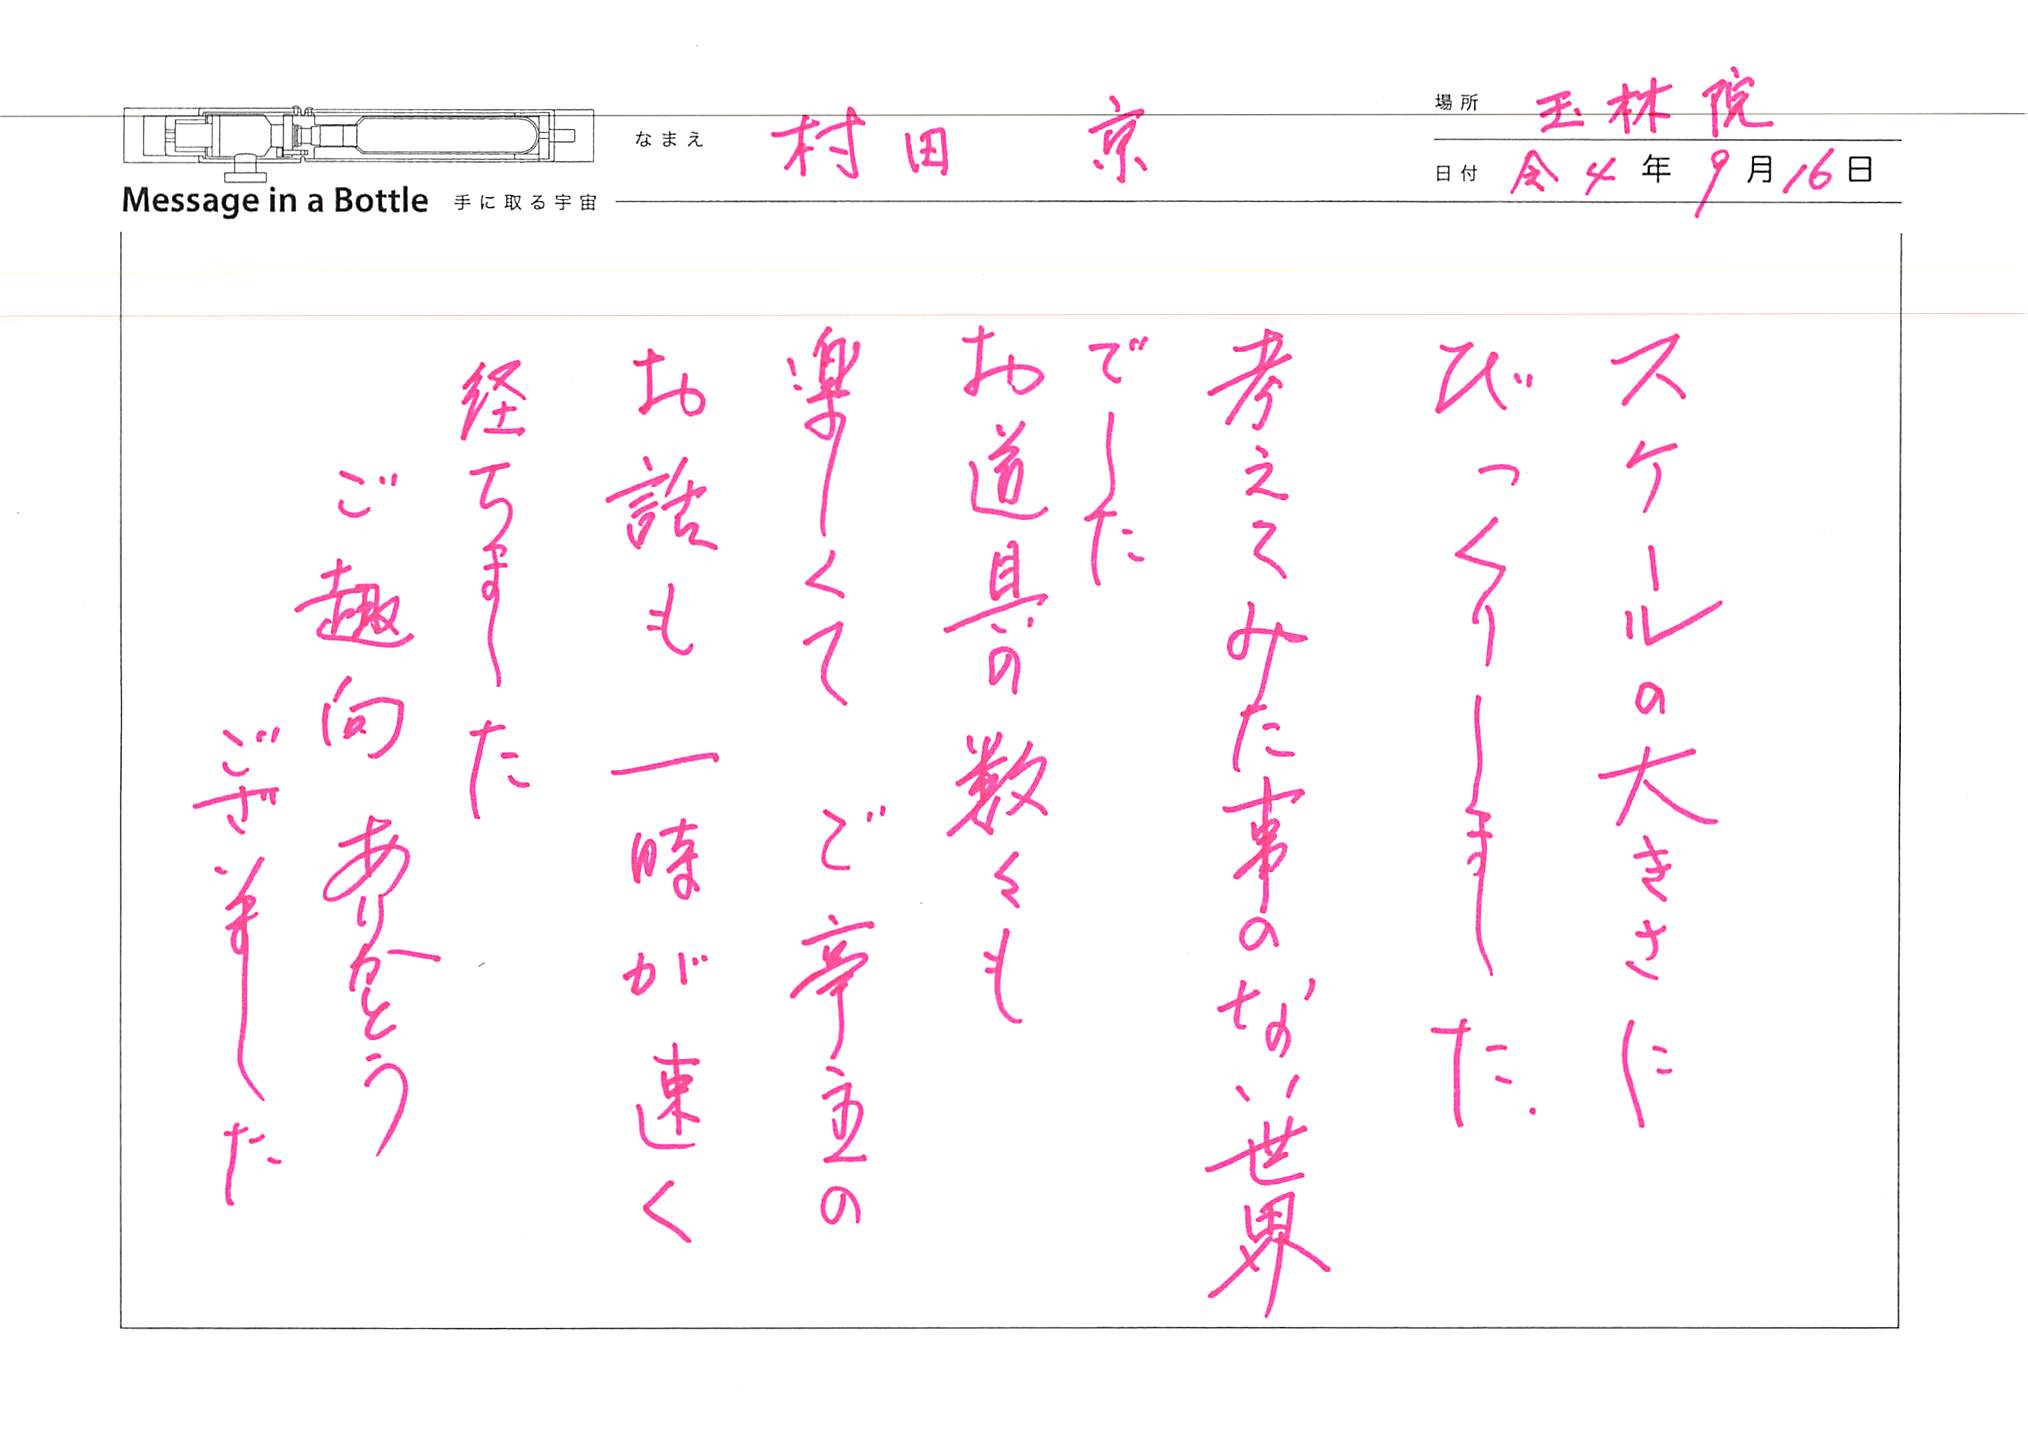 なまえ 村田 京
場所 玉林院
日付 令4年9月16日
Message in a Bottle 手に取る宇宙
スケールの大きさに
びっくりしました.
考えてみた事のない世界
でした
お道具の数々も
楽しくて ご亭主の
お話も一時が速く
経ちました
ご趣向 ありがとう
ございました